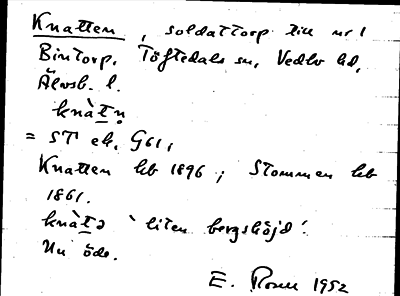 Knatten, soldattorp till nr 1
Bintorp, Töftedals sn, Vedbo hd,
Älvsb. l.
knàtn̥
= ST ek. G61,
Knatten hb 1896; Stommen hb
1861.
knàtə 'liten bergshöjd'.
Nu öde.
E. Rosell 1952